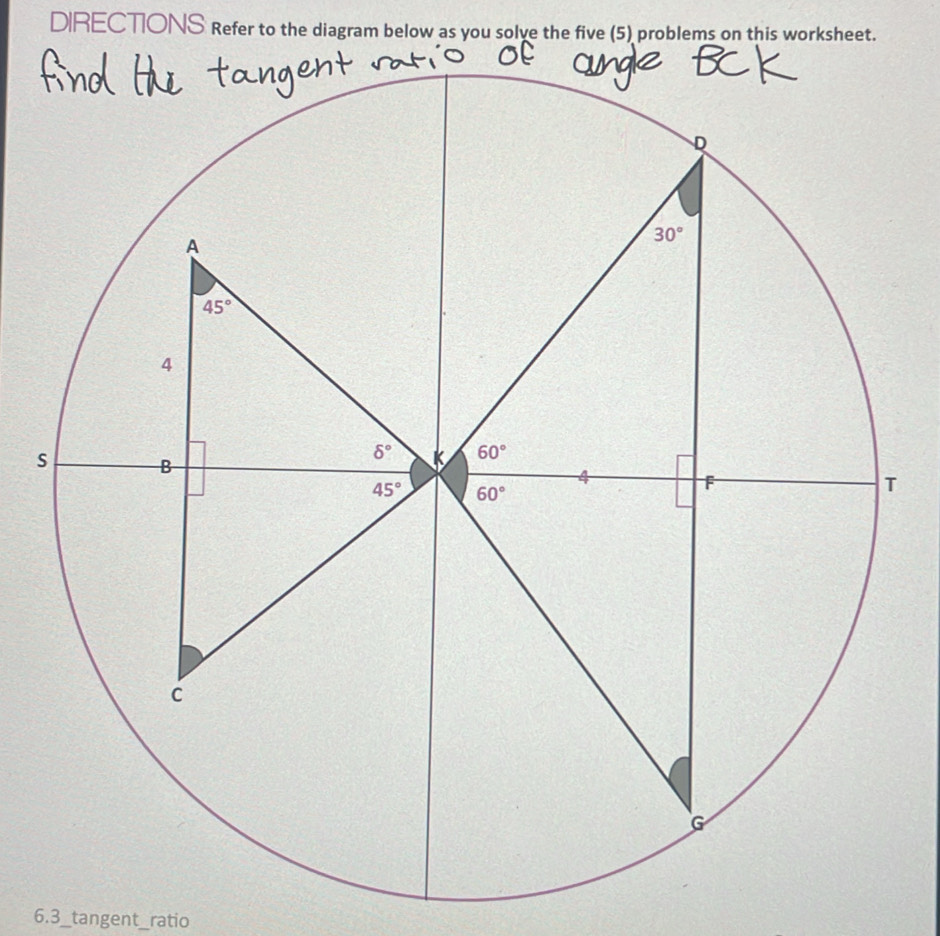 DIRECTIONS Refer to the diagram below as you solve the five (5) problems on this worksheet.
find the tangent ratio of angle BCK
D
30°
A
45°
4
S
B
δ°
K
60°
4
F
T
45°
60°
C
G
6.3_tangent_ratio